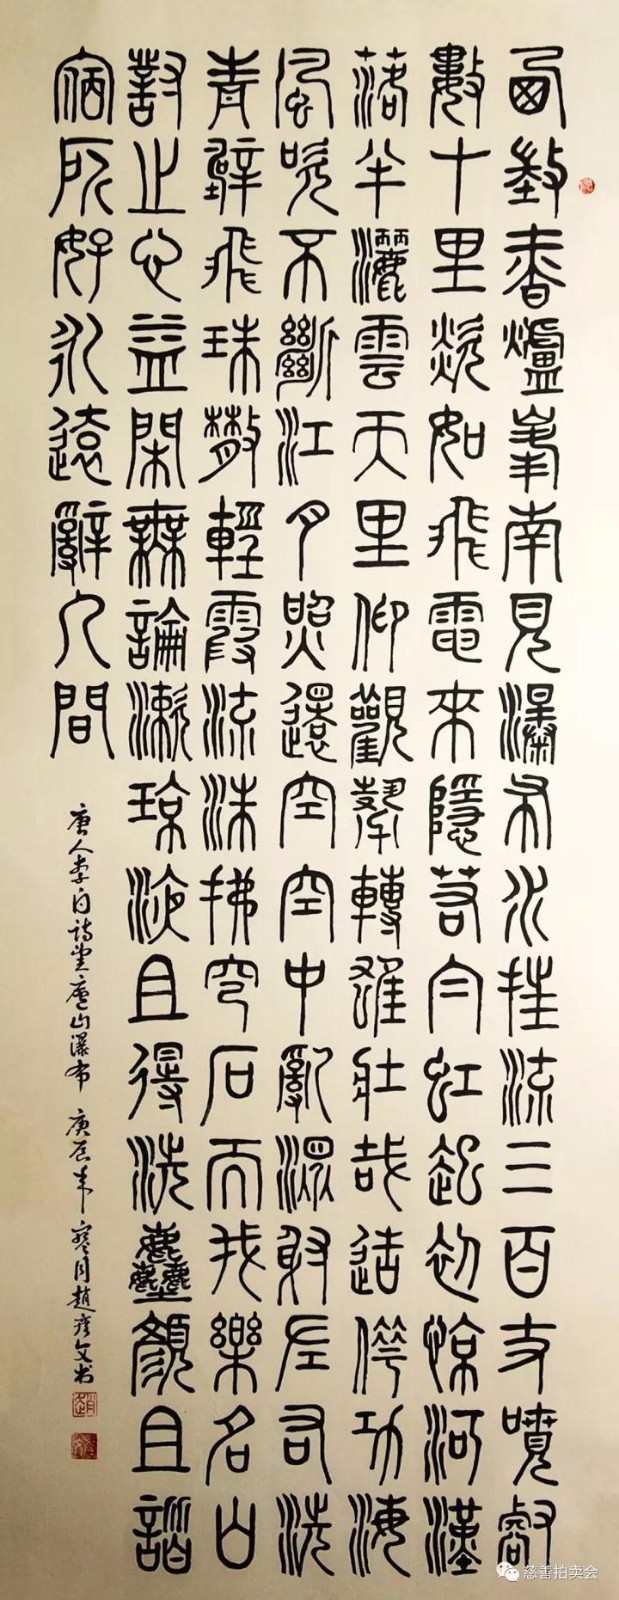 西登香爐峯南見瀑布水挂流三百丈噴壑
數十里欻如飛電來隱若白虹起初惊河漢
落半灑雲天里仰觀勢轉雄壯哉造化功海
風吹不斷江月照還空空中亂潈射左右洗
青壁飛珠散輕霞流沫拂穹石而我樂名山
對止心益閑無論漱琼液且得洗塵顏且諧
宿所好永遠辭人間
唐人李白詩望廬山瀑布 庚辰年寒月趙文书
慈善拍卖会